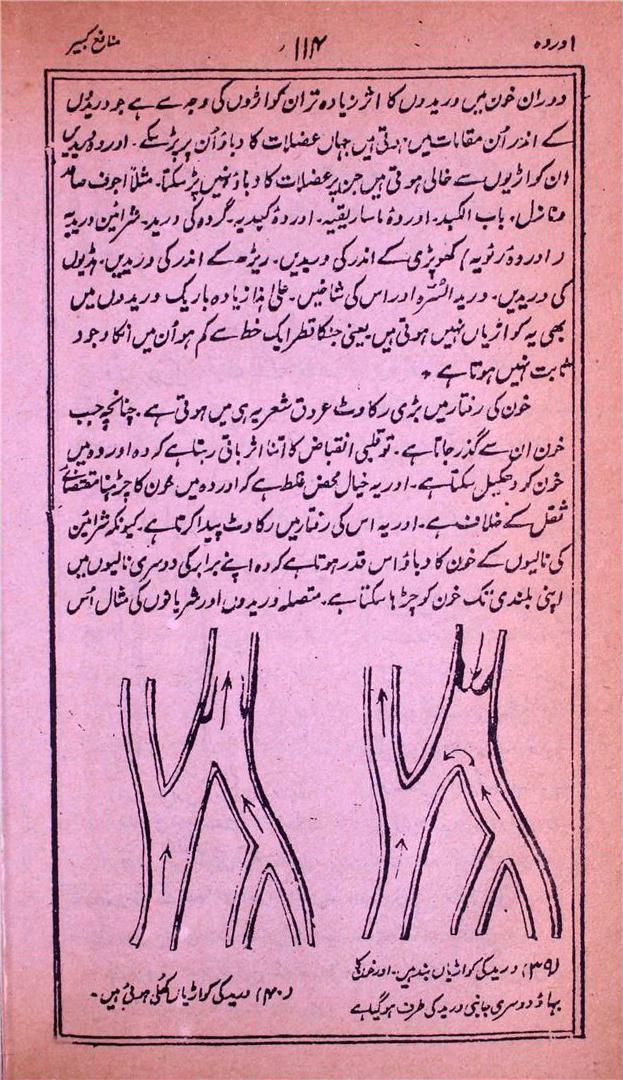 اوردہ
۱۱۴
منافع کبیر
دوران خون میں وریدوں کا اثر زیادہ تر ان کواڑوں کی وجہ سے ہے جو وریدوں
کے اندر اُن مقامات میں ہوتی ہیں جہاں عضلات کا دباؤ اُن پر پڑ سکے۔ اور وہ وریدیں
ان کواڑیوں سے خالی ہوتی ہیں جن پر عضلات کا دباؤ نہیں پڑ سکتا۔ مثلاً اجوف صاعد
و نازل۔ باب الکبد۔ اوردۂ ماساریقیہ۔ اوردۂ کبدیہ۔ گردہ کی ورید۔ شرائین وریدیہ
(اوردۂ رئویہ) کھوپڑی کے اندر کی وریدیں۔ ریڑھ کے اندر کی وریدیں۔ ہڈیوں
کی وریدیں۔ ورید السّرّہ اور اس کی شاخیں۔ علیٰ ہذا زیادہ باریک وریدوں میں
بھی یہ کواڑیاں نہیں ہوتی ہیں۔ یعنی جنکا قطر ایک خط سے کم ہو اُن میں انکا وجود
ثابت نہیں ہوتا ہے ٭
خون کی رفتار میں بڑی رکاوٹ عروق شعریہ ہی میں ہوتی ہے۔ چنانچہ جب
خون ان سے گذر جاتا ہے۔ تو قلبی انقباض کا اتنا اثر باقی رہتا ہے کہ وہ اوردہ میں
خون کو دھکیل سکتا ہے۔ اور یہ خیال محض غلط ہے کہ اوردہ میں خون کا چڑہنا مقتضائے
ثقل کے خلاف ہے۔ اور یہ اس کی رفتار میں رکاوٹ پیدا کرتا ہے۔ کیونکہ شرائین
کی نالیوں کے خون کا دباؤ اس قدر ہوتا ہے کہ وہ اپنے برابر کی دوسری نالیوں میں
اپنی بلندی تک خون کو چڑہا سکتا ہے۔ متصلہ وریدوں اور شریانوں کی مثال اُس
(۳۹) ورید کی کواڑیاں بند ہیں۔ اور خون کا
بہاؤ دوسری جانبی ورید کی طرف ہو گیا ہے
(۴۰) ورید کی کواڑیاں کھلی ہوئی ہیں۔